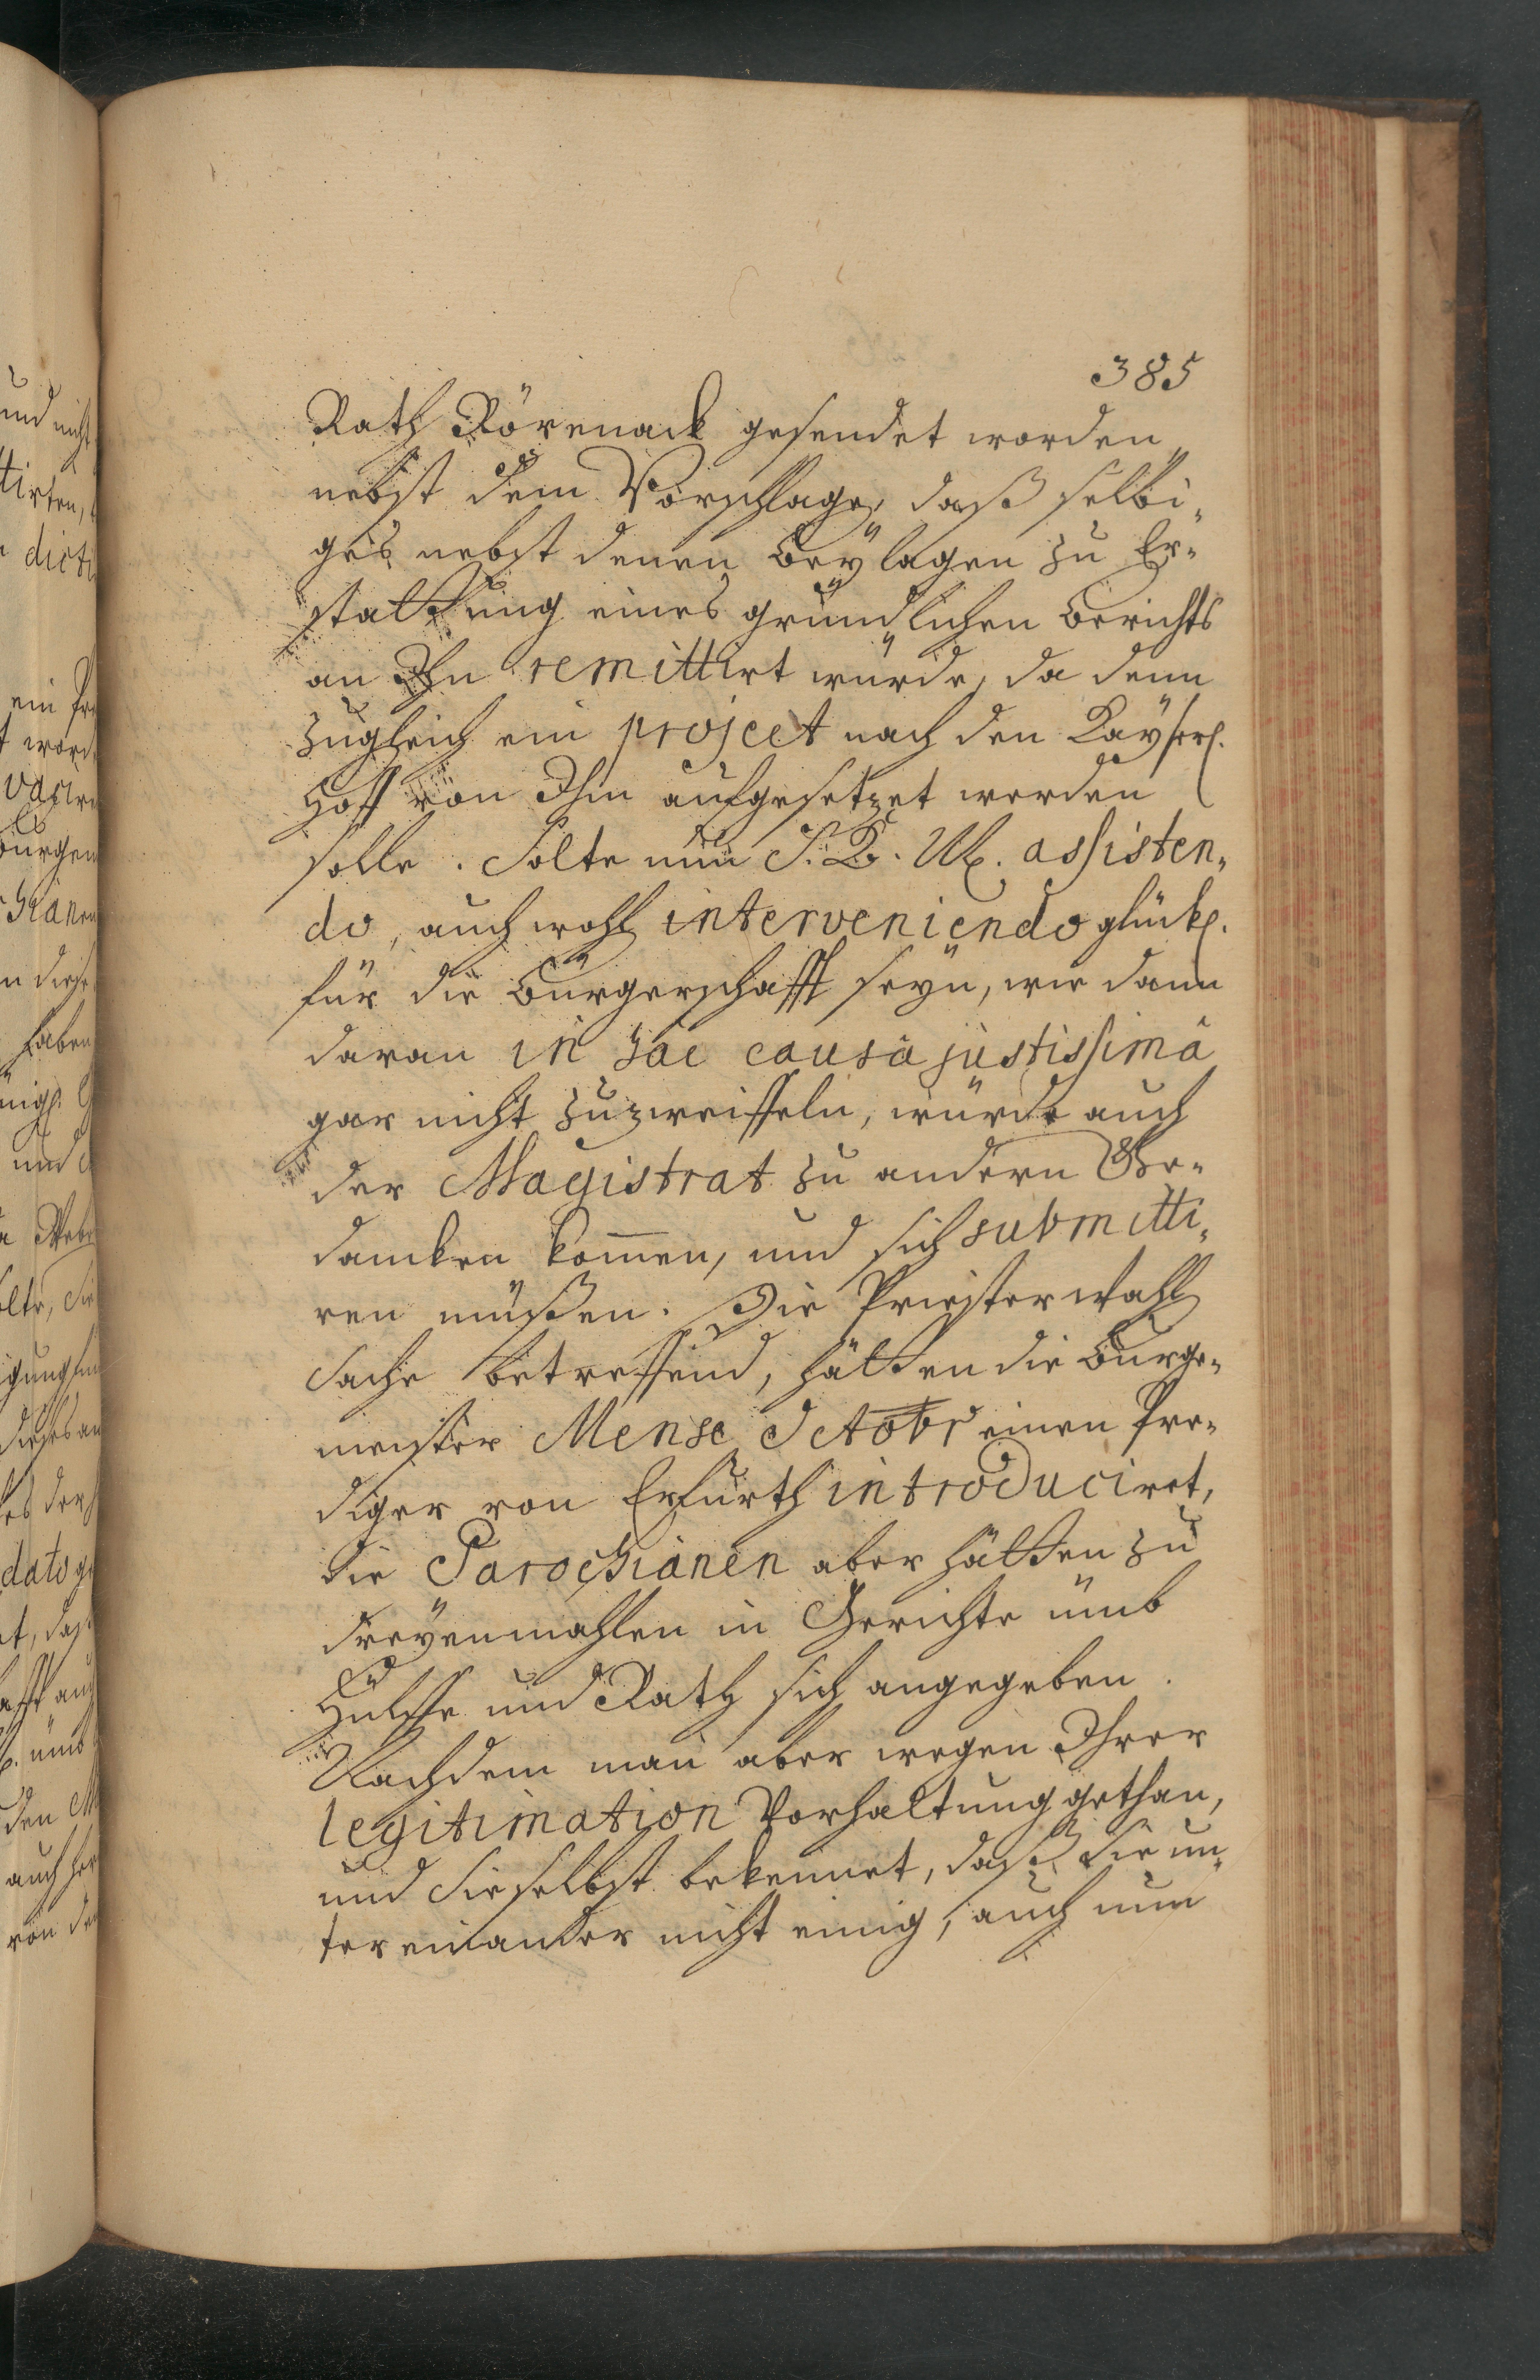 385
Rath Rörenack gesendet worden,
nebst dem Vorschlage, daß selbi-
ges nebst denen Beÿlagen zu Er-
stattung eines gründlichen Berichts
an Ihn remittirt würde, da denn
zugleich ein project nach den Kaÿserl.
Hoff von Ihm aufgesetzet werden
solle. Solte nun S. K. M. assisten-
do, auch wohl interveniendo glückl.
für die Bürgerschafft seÿn, wie dann
daran in hac causa justissimâ
gar nicht zuzweiffeln, würde auch
der Magistrat zu andern Ge-
dancken kom̄en, und sich submitti-
ren müßen. Die Priesterwahl
Sache betreffend, hätten die Burge-
meister Mense Octobr einen Pre-
diger von Erfurth introduciret,
die Parochianen aber hätten zu
dreÿenmahlen in Gerichte umb
Hülffe und Rath sich angegeben.
Nachdem man aber wegen Ihrer
legitimation Vorhaltung gethan,
und Sie selbst bekennet, daß Sie un-
ter einander nicht einig, auch nun
und nicht
tirten,
dicti
haben
dato
auch